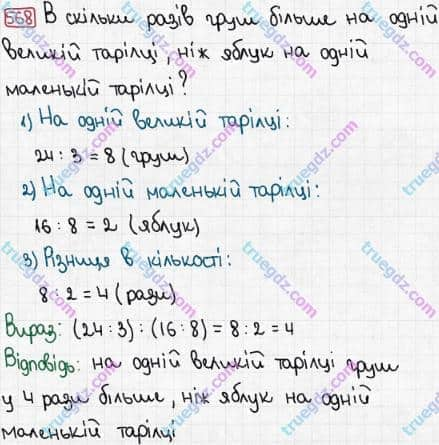 568 В скільки разів груш більше на одній
великій тарілці, ніж яблук на одній
маленькій тарілці?
1) На одній великій тарілці:
24 : 3 = 8 (груш)
2) На одній маленькій тарілці:
16 : 8 = 2 (яблук)
3) Різниця в кількості:
8 : 2 = 4 (рази)
Вираз: (24 : 3) : (16 : 8) = 8 : 2 = 4
Відповідь: на одній великій тарілці груш
у 4 рази більше, ніж яблук на одній
маленькій тарілці
truegdz.com